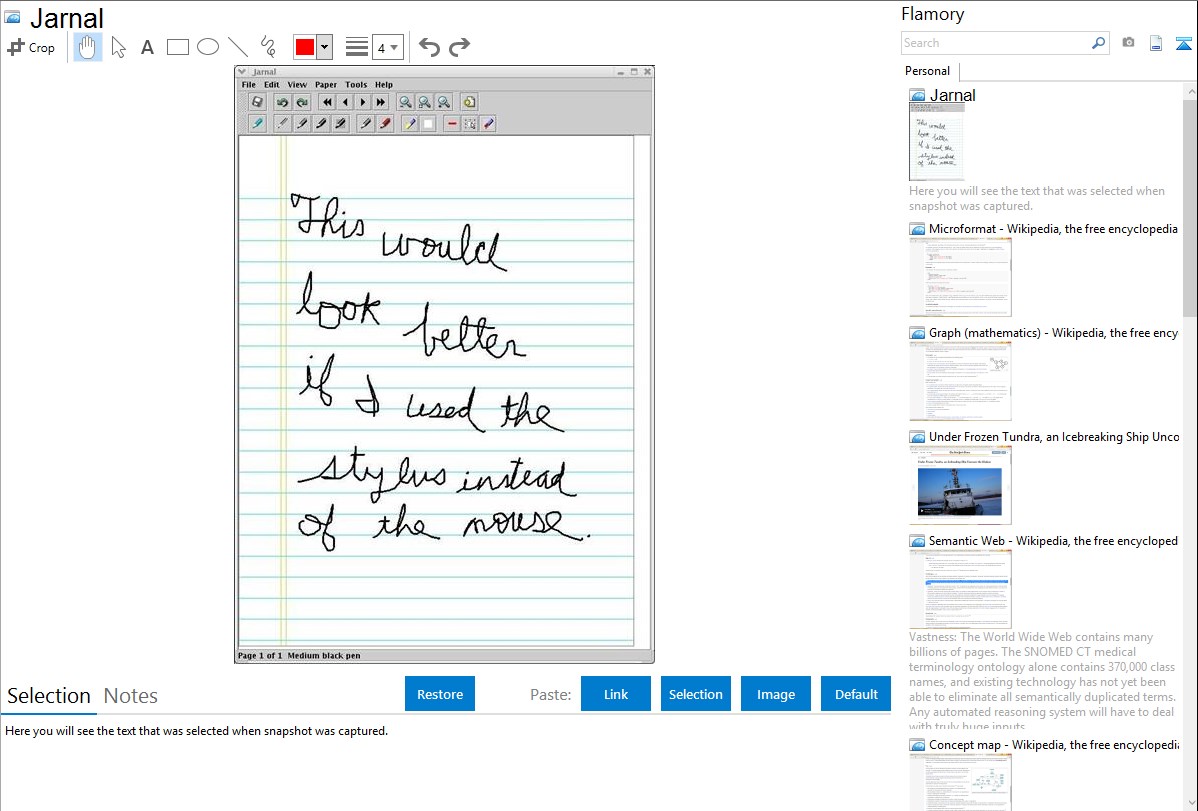 Jarnal
Crop
A
4
Jarnal
File Edit View Paper Tools Help
This would
look better
if I used the
stylus instead
of the mouse.
Page 1 of 1 Medium black pen
Selection Notes
Restore
Paste:
Link
Selection
Image
Default
Here you will see the text that was selected when snapshot was captured.
Flamory
Search
Personal
Jarnal
Here you will see the text that was selected when
snapshot was captured.
Microformat - Wikipedia, the free encyclopedia
Graph (mathematics) - Wikipedia, the free ency
Under Frozen Tundra, an Icebreaking Ship Unco
Semantic Web - Wikipedia, the free encycloped
Vastness: The World Wide Web contains many
billions of pages. The SNOMED CT medical
terminology ontology alone contains 370,000 class
names, and existing technology has not yet been
able to eliminate all semantically duplicated terms.
Any automated reasoning system will have to deal
with truly huge inputs
Concept map - Wikipedia, the free encyclopedi